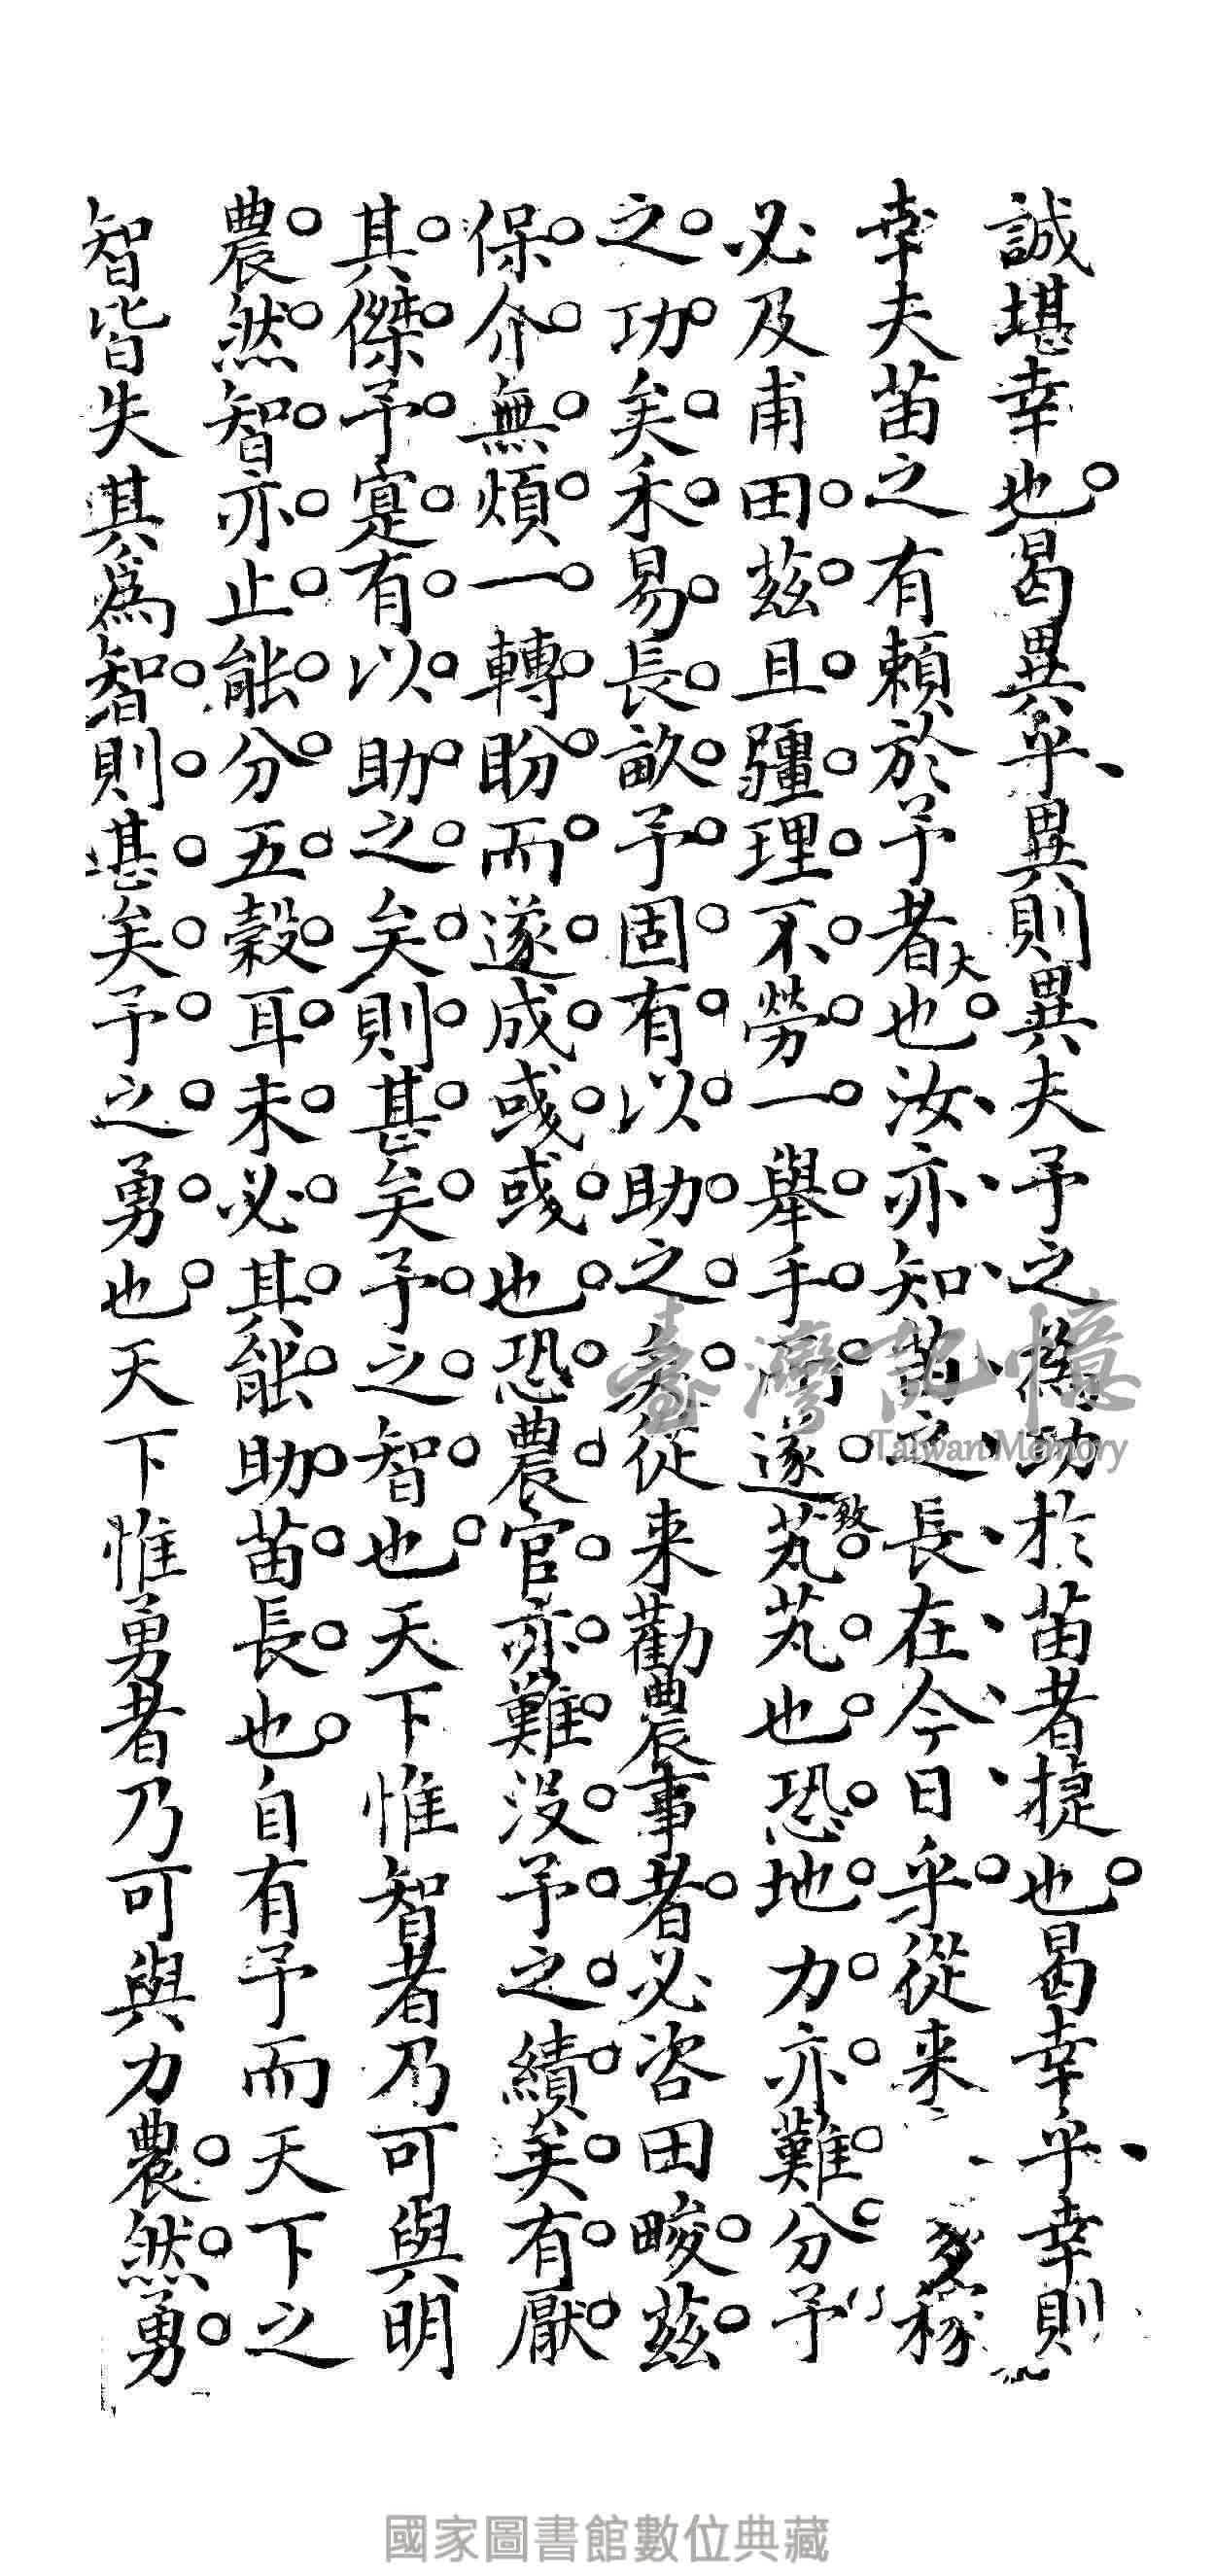 誠堪幸也曷異乎異則異夫予之為功於苗者捷也曷幸乎幸則
幸夫苗之有賴於予者大也汝亦知苗之長在今日乎從来多稼
必及甫田茲且疆理不勞一舉手而遂致芃芃也恐地力亦難分予
之功矣禾易長畝予固有以助之矣從来勸農事者必咨田畯茲
保介無煩一轉盼而遂成彧彧也恐農官亦難沒予之績矣有厭
其傑予寔有以助之矣則甚矣予之智也天下惟智者乃可與明
農然智亦止能分五穀耳未必其能助苗長也自有予而天下之
智皆失其為智則甚矣予之勇也天下惟勇者乃可與力農然勇
臺灣記憶
Taiwan Memory
國家圖書館數位典藏